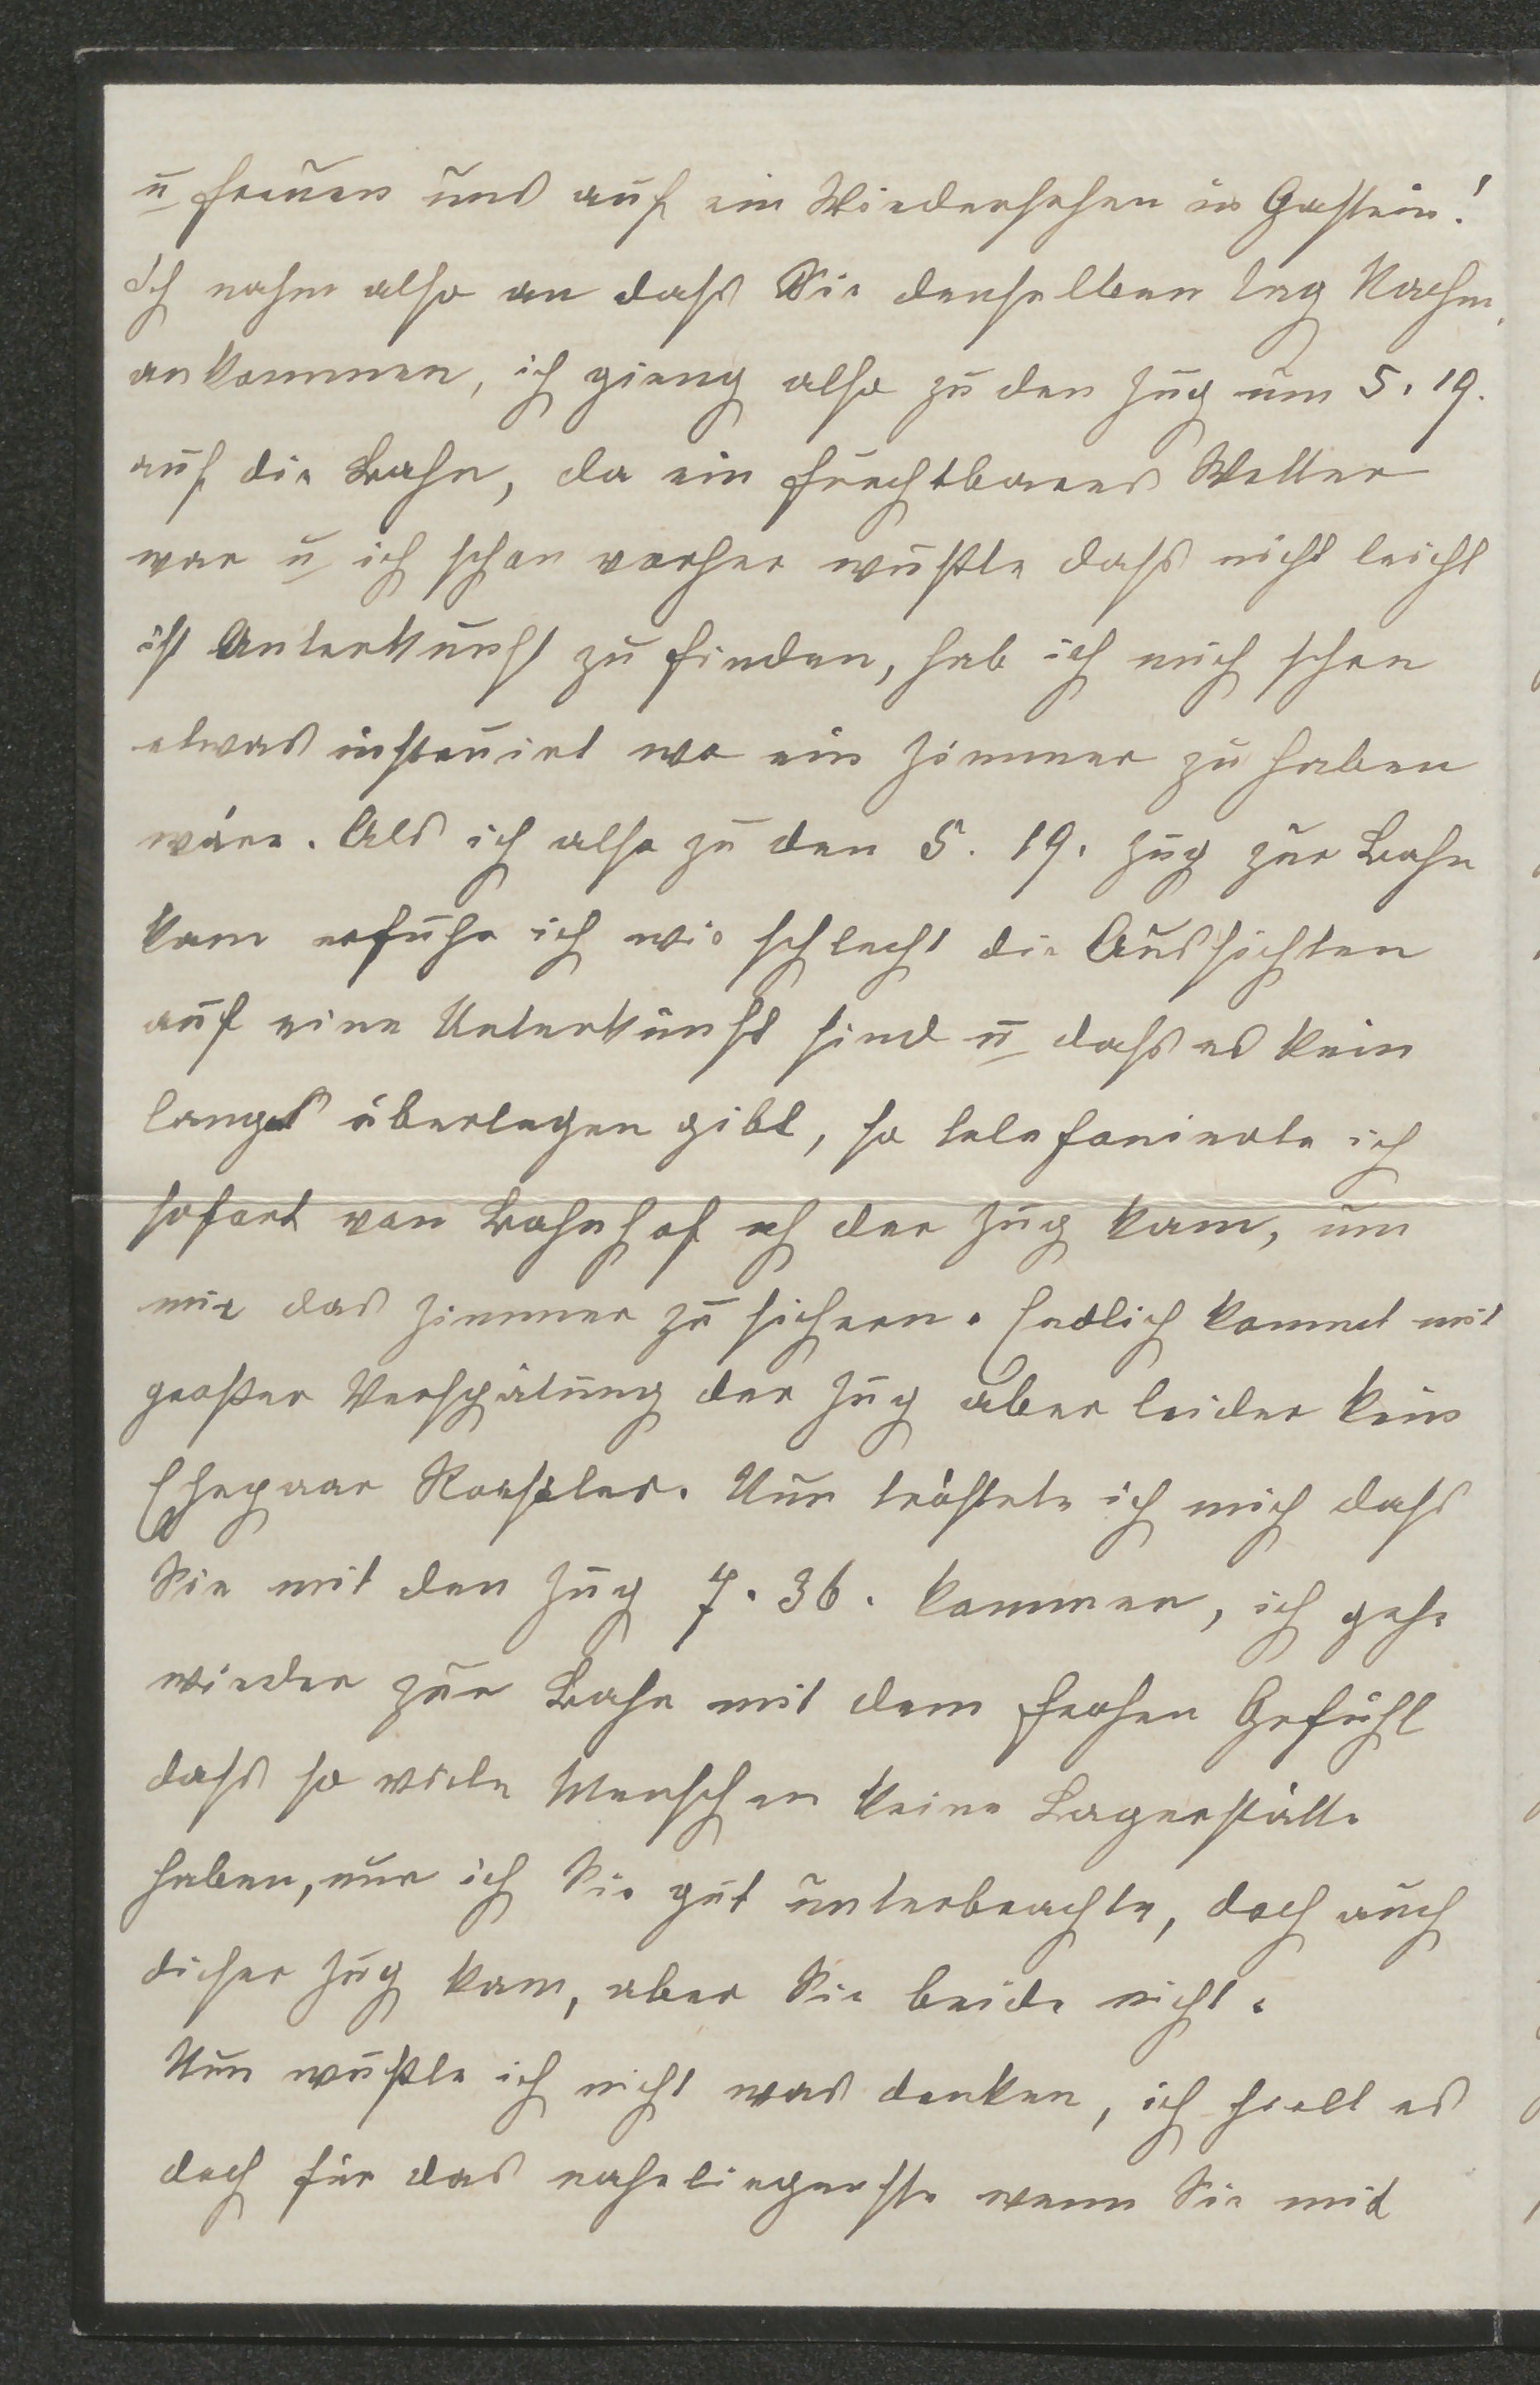 u freuen uns auf ein Wiedersehen in Gastein!
Ich nahm also an dass Sie denselben Tag Nachm.
ankommen, ich gieng also zu den Zug um 5.19.
auf die Bahn, da ein furchtbares Wetter
war u ich schon vorher wußte dass nicht leicht
ist Unterkunft zu finden, hab ich mich schon
etwas instruirt wo ein Zimmer zu haben
wäre. Als ich also zu den 5.19. Zug zur Bahn
kam erfuhr ich wie schlecht die Aussichten
auf eine Unterkunft sind u dass es kein
langes überlegen gibt, so telefonierte ich
sofort von Bahnhof eh der Zug kam, um
mir das Zimmer zu sichern. Endlich kommt mit
großer Verspätung der Zug aber leider kein
Ehepaar Roessler. Nun tröstete ich mich dass
Sie mit den Zug 7.36. kommen, ich gehe
wieder zur Bahn mit dem frohen Gefühl
dass so viele Menschen keine Lagerstätte
haben, nur ich Sie gut unterbrachte, doch auch
dieser Zug kam, aber Sie beide nicht.
Nun wußte ich nicht was denken, ich hielt es
doch für das naheliegenste wenn Sie mit